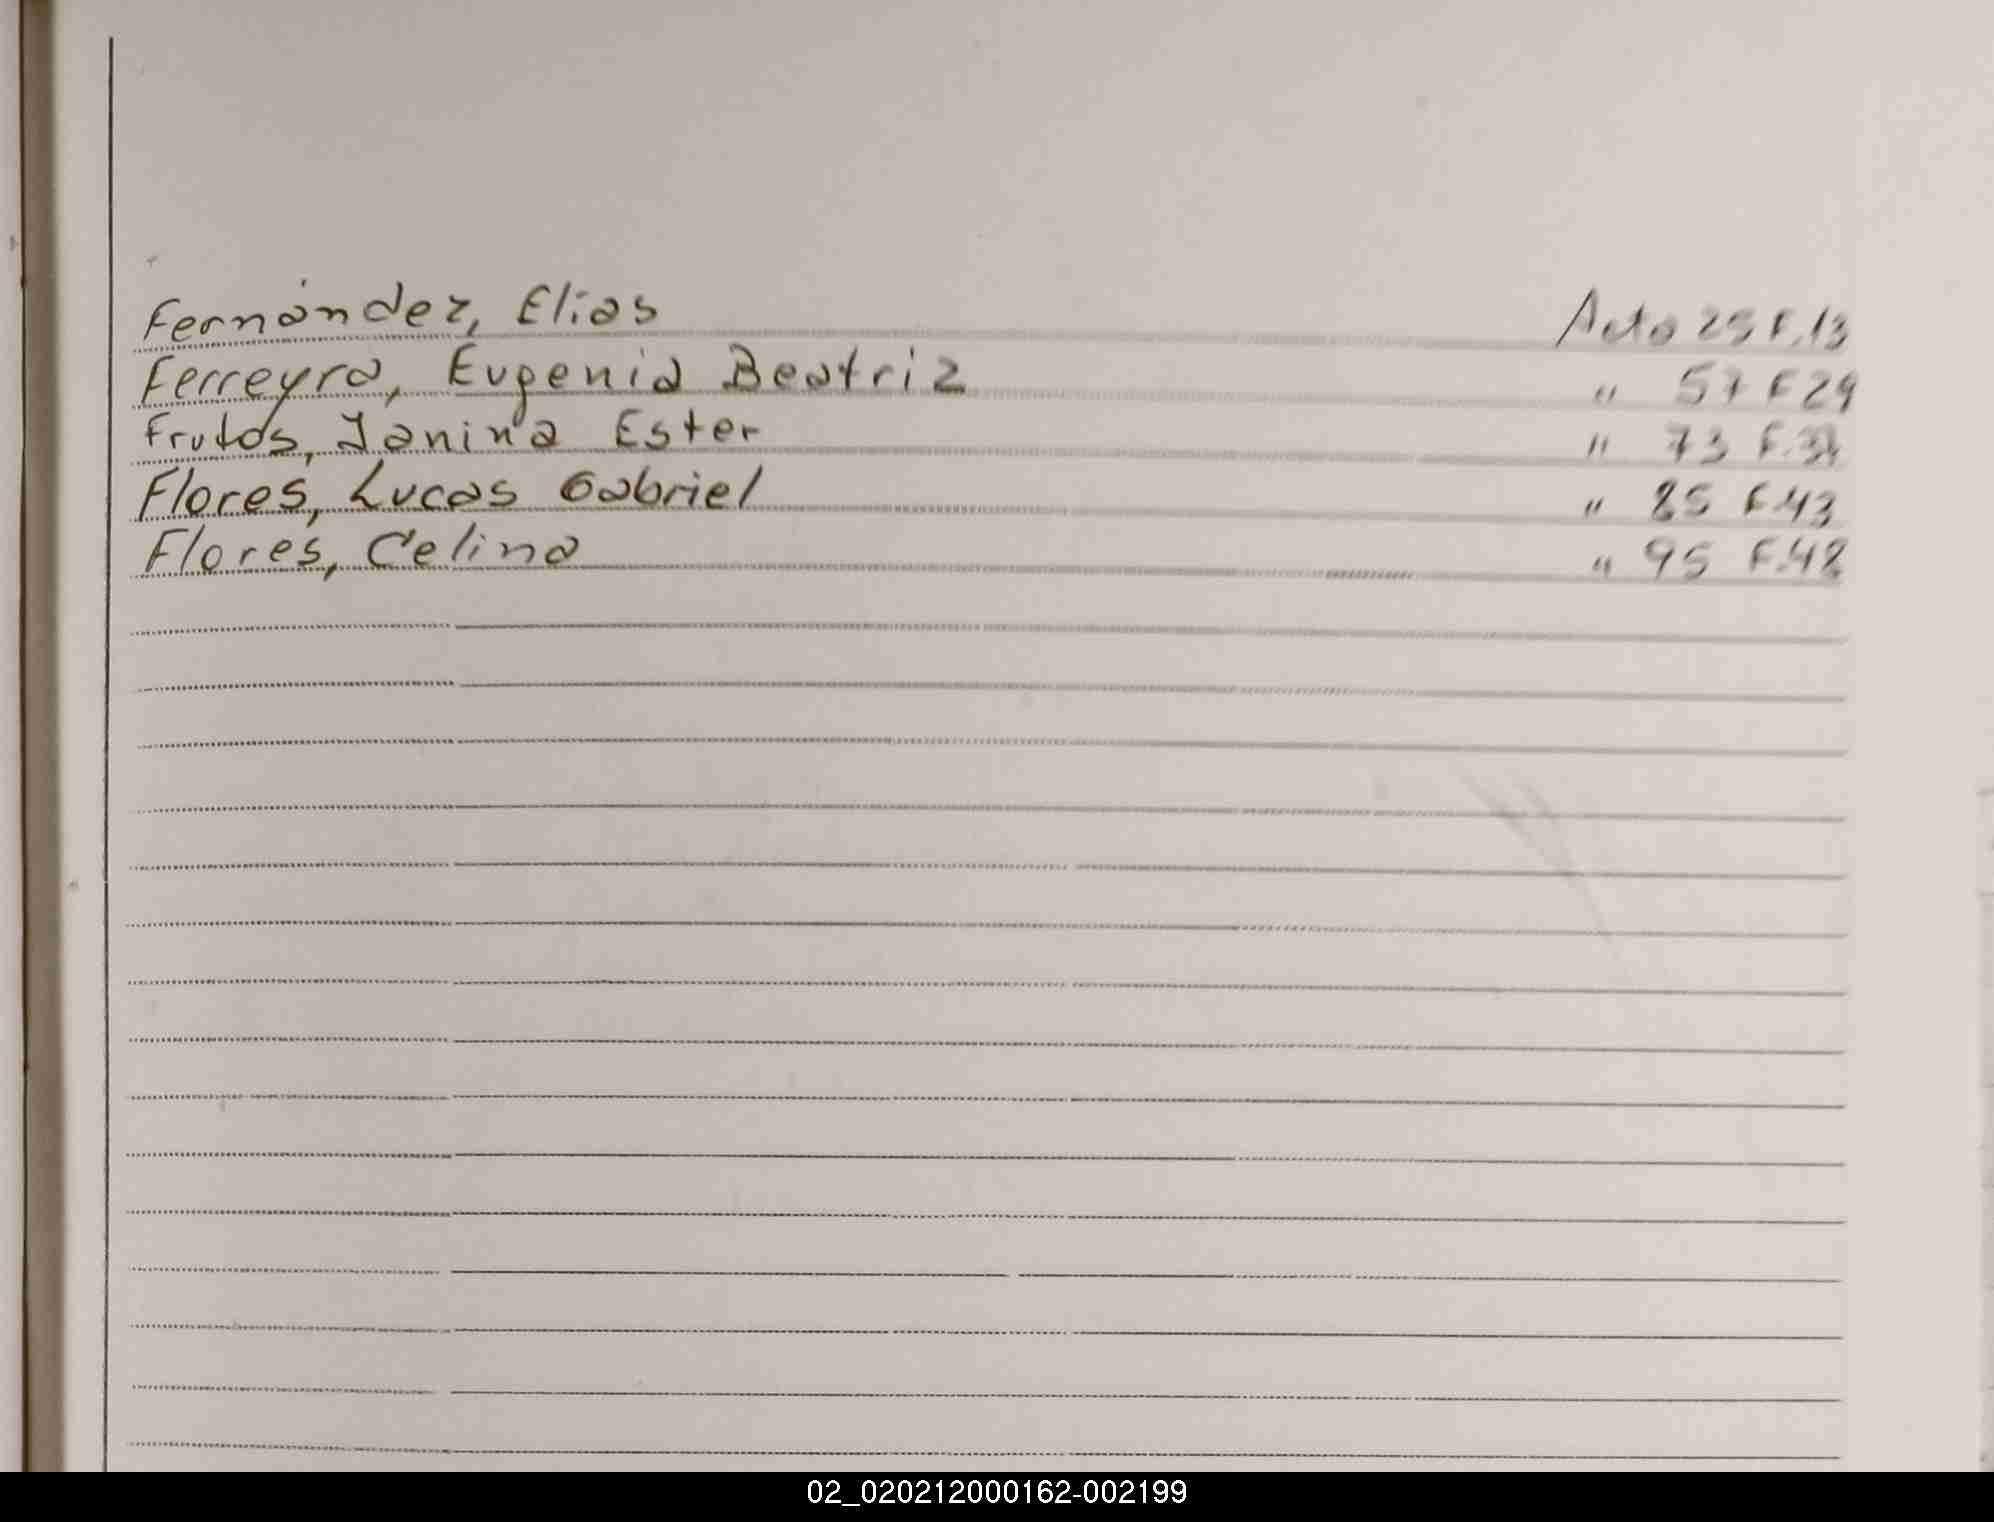 Fernández, Elias Acta 25 F.13
Ferreyra, Eugenia Beatriz " 57 F 29
Frutos, Janina Ester " 73 F.
Flores, Lucas Gabriel " 85 F.43
Flores, Celina " 95 F.48
02_020212000162-002199